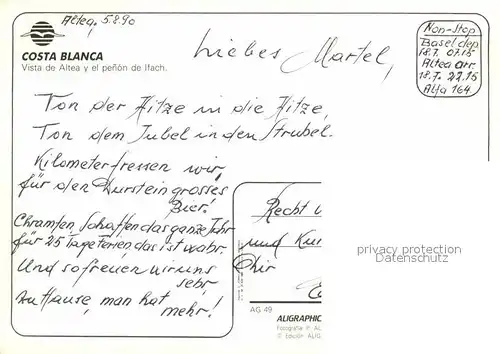 Altea, 5.8.90
COSTA BLANCA
Vista de Altea y el peñón de Ifach.
Liebes Martel,
Non-Stop
Basel dep.
18.7. 07.15
Altea arr.
18.7. 22.15
Alfa 164
Von der Hitze in die Hitze,
Von dem Jubel in den Strubel.
Kilometerfressen wir,
für den Durst ein grosses
Bier!
Chrampfen, Schaffen das ganze Jahr
für 25 Tage Ferien, das ist wahr.
Und so freuen wir uns
sehr,
zu Hause, man hat
mehr!
Recht
und
Dir
privacy protection
Datenschutz
AG 49
ALIGRAPHIC
Fotografía P. AL
© Edición ALIG